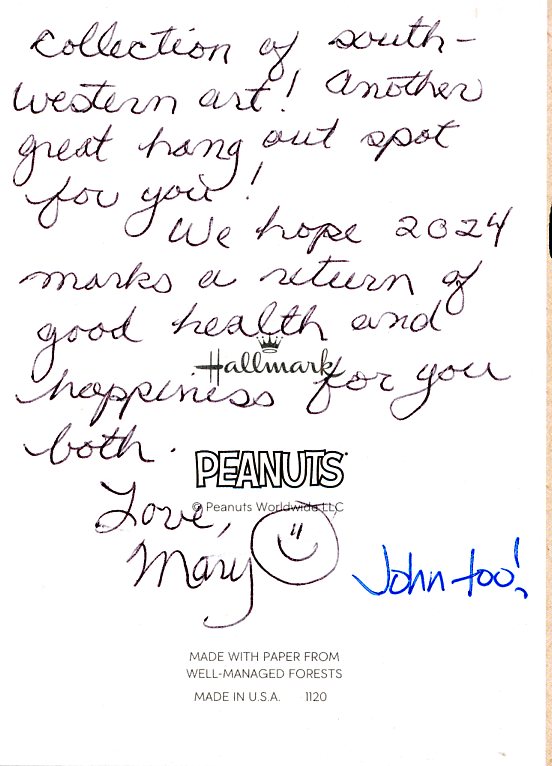 collection of south-
western art! Another
great hang out spot
for you!
We hope 2024
marks a return of
good health and
Hallmark
happiness for you
both.
PEANUTS
© Peanuts Worldwide LLC
Love,
Mary
John too!
MADE WITH PAPER FROM
WELL-MANAGED FORESTS
MADE IN U.S.A. 1120